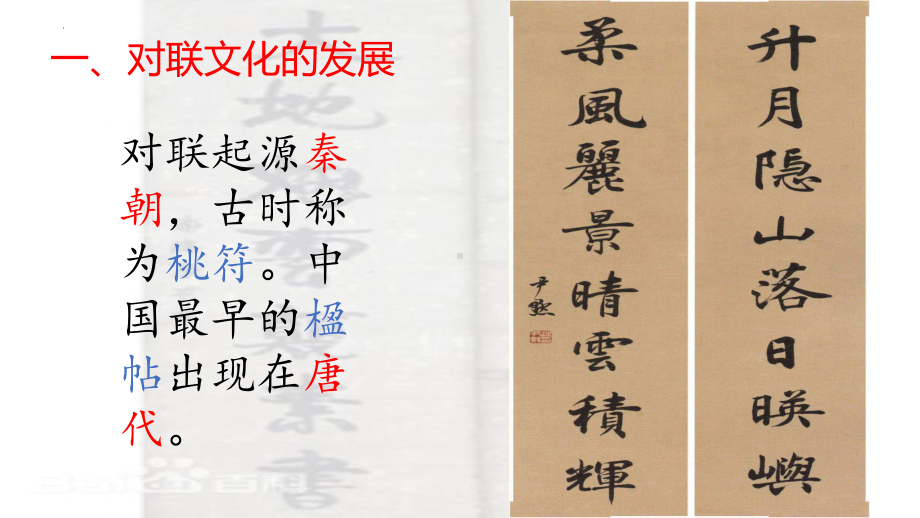 一、对联文化的发展
对联起源秦
朝，古时称
为桃符。中
国最早的楹
帖出现在唐
代。
升月隐山落日暎嶼
柔風麗景晴雲積輝
尹默
Bai 百科